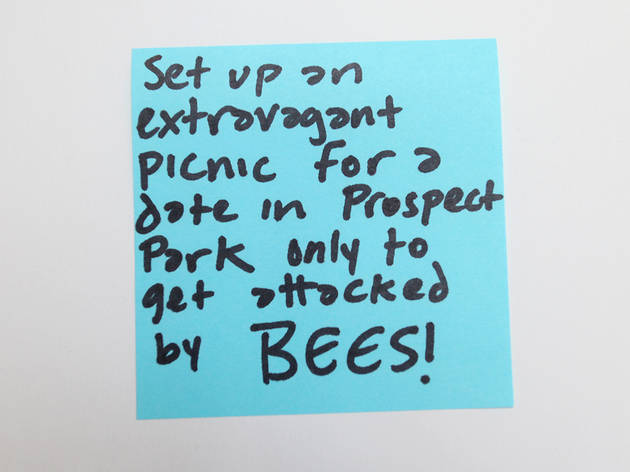 Set up an
extravagant
picnic for a
date in Prospect
Park only to
get attacked
by BEES!